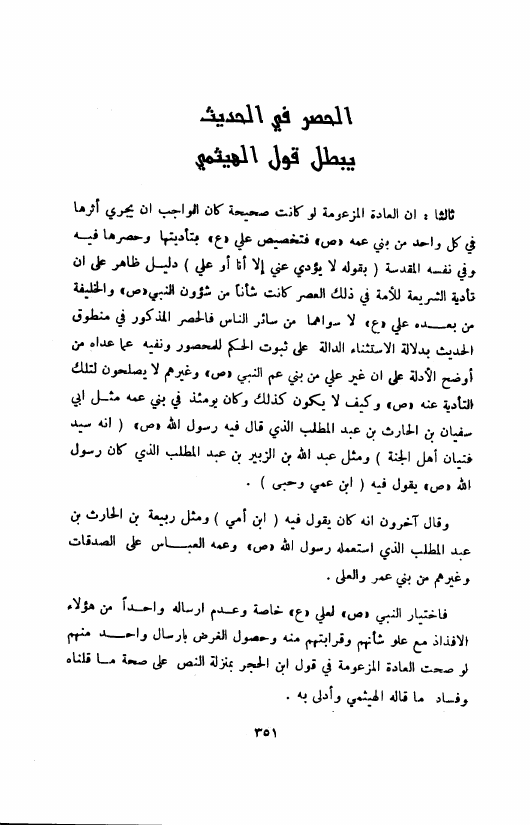 الحصر في الحديث
يبطل قول الهيثمي
ثالثا : ان العادة المزعومة لو كانت صحيحة كان الواجب ان يجري أثرها
في كل واحد من بني عمه «ص» فتخصيص علي «ع» بتأديتها وحصرها فيه
وفي نفسه المقدسة ( بقوله لا يؤدي عني إلا أنا أو علي ) دليل ظاهر على ان
تأدية الشريعة للأمة في ذلك العصر كانت شأناً من شؤون النبي «ص» والخليفة
من بعده علي «ع» لا سواهما من سائر الناس فالحصر المذكور في منطوق
الحديث بدلالة الاستثناء الدالة على ثبوت الحكم للمحصور ونفيه عما عداه من
أوضح الأدلة على ان غير علي من بني عم النبي «ص» وغيرهم لا يصلحون لتلك
التأدية عنه «ص» وكيف لا يكون كذلك وكان يومئذ في بني عمه مثل ابي
سفيان بن الحارث بن عبد المطلب الذي قال فيه رسول الله «ص» ( انه سيد
فتيان أهل الجنة ) ومثل عبد الله بن الزبير بن عبد المطلب الذي كان رسول
الله «ص» يقول فيه ( ابن عمي وحبى ) .
وقال آخرون انه كان يقول فيه ( ابن أمي ) ومثل ربيعة بن الحارث بن
عبد المطلب الذي استعمله رسول الله «ص» وعمه العباس على الصدقات
وغيرهم من بني عمر والعلى .
فاختيار النبي «ص» لعلي «ع» خاصة وعدم ارساله واحداً من هؤلاء
الافذاذ مع علو شأنهم وقرابتهم منه وحصول الغرض بارسال واحد منهم
لو صحت العادة المزعومة في قول ابن الحجر بمنزلة النص على صحة ما قلناه
وفساد ما قاله الهيثمي وأدلى به .
٣٥١